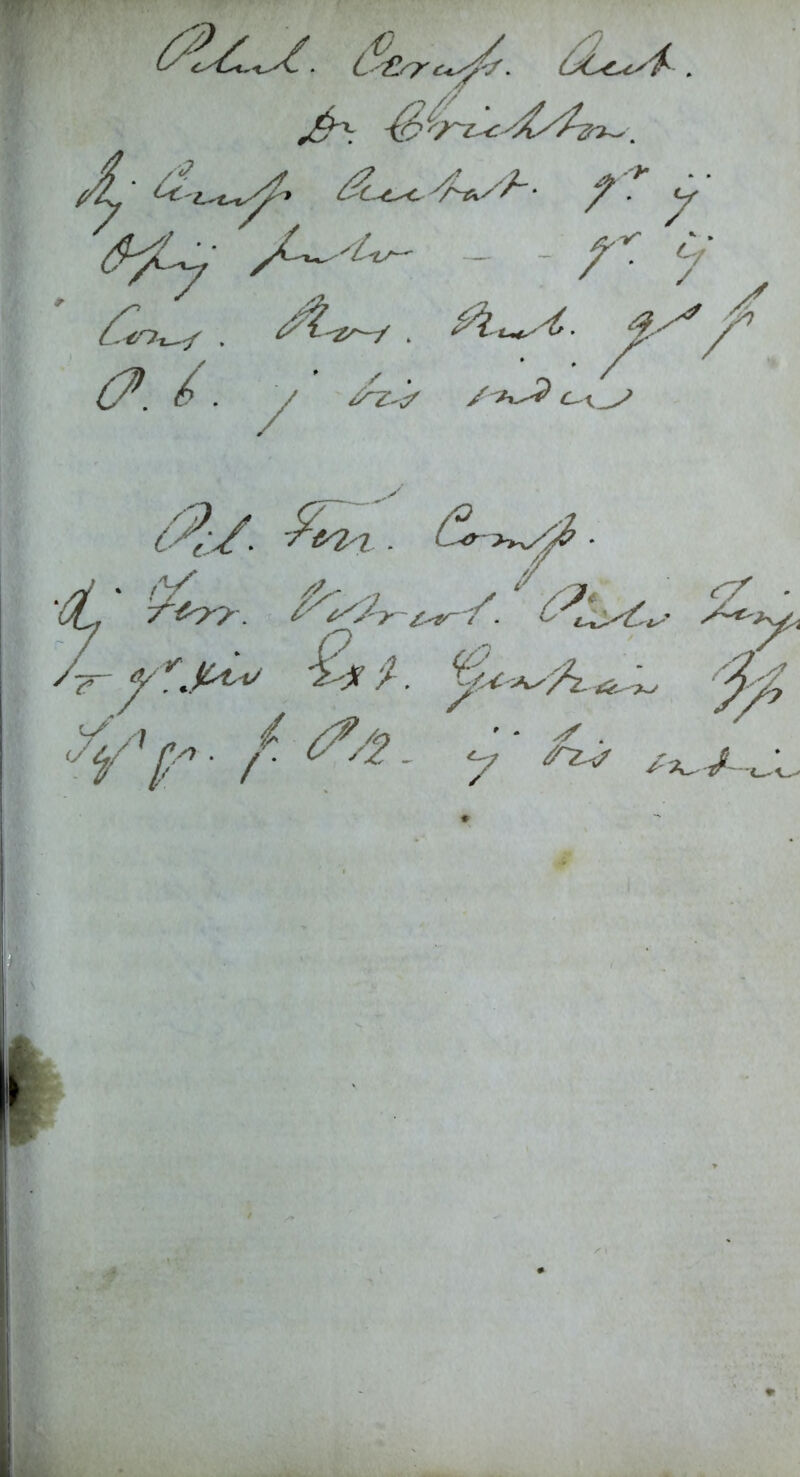 Pilul. Ceruss. Acet.
Dr. Crichton.
℞ Ceruss Acetat. gr. ij
Opij pulv — - gr. ij
Cons. Ros. Rub. qs f
P. 6. j bis indies
Pil. Ferr. Comp.
℞ Ferr. Vitriol. Pulv Zing
gr. xiv Ext. Gentian ʒſs
f. P 12. ij bis indies